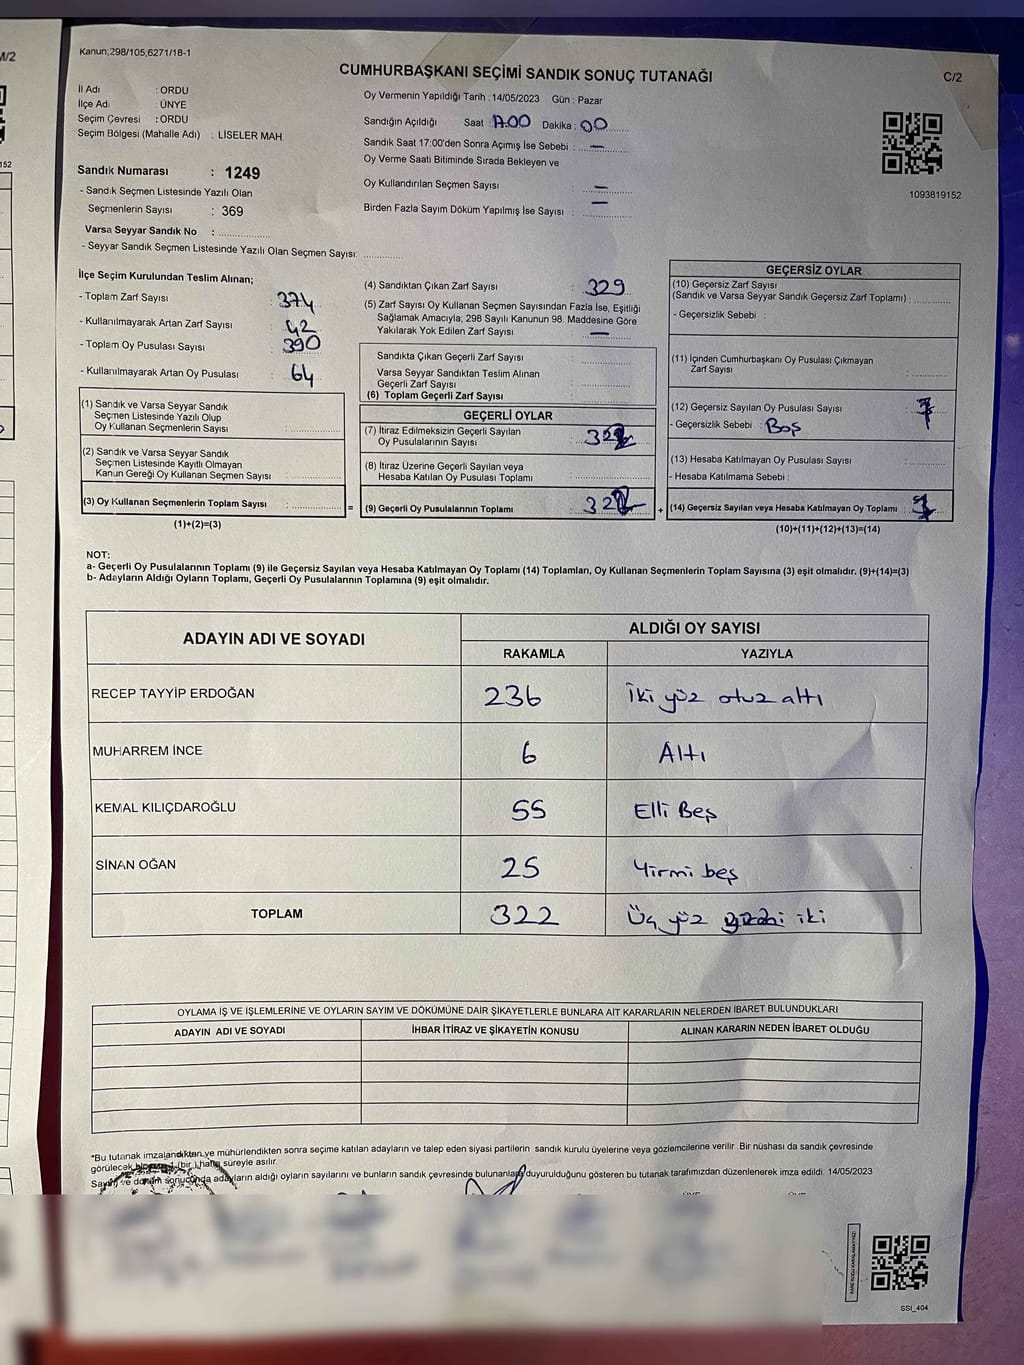 M/2
Kanun;298/105,6271/18-1
C/2
CUMHURBAŞKANI SEÇİMİ SANDIK SONUÇ TUTANAĞI
İl Adı : ORDU
İlçe Adı : ÜNYE
Seçim Çevresi : ORDU
Seçim Bölgesi (Mahalle Adı) : LİSELER MAH.
Sandık Numarası : 1249
- Sandık Seçmen Listesinde Yazılı Olan
Seçmenlerin Sayısı : 369
Varsa Seyyar Sandık No :
- Seyyar Sandık Seçmen Listesinde Yazılı Olan Seçmen Sayısı:
Oy Vermenin Yapıldığı Tarih : 14/05/2023 Gün : Pazar
Sandığın Açıldığı Saat : 17.00 Dakika : 00
Sandık Saat 17:00'den Sonra Açımış İse Sebebi : —
Oy Verme Saati Bitiminde Sırada Bekleyen ve
Oy Kullandırılan Seçmen Sayısı : —
Birden Fazla Sayım Döküm Yapılmış İse Sayısı : —
1093819152
152
İlçe Seçim Kurulundan Teslim Alınan;
- Toplam Zarf Sayısı : 374
- Kullanılmayarak Artan Zarf Sayısı : 42
- Toplam Oy Pusulası Sayısı : 390
- Kullanılmayarak Artan Oy Pusulası : 64
(1) Sandık ve Varsa Seyyar Sandık
Seçmen Listesinde Yazılı Olup
Oy Kullanan Seçmenlerin Sayısı :
(2) Sandık ve Varsa Seyyar Sandık
Seçmen Listesinde Kayıtlı Olmayan
Kanun Gereği Oy Kullanan Seçmen Sayısı :
(3) Oy Kullanan Seçmenlerin Toplam Sayısı : =
(1)+(2)=(3)
(4) Sandıktan Çıkan Zarf Sayısı : 329
(5) Zarf Sayısı Oy Kullanan Seçmen Sayısından Fazla İse, Eşitliği
Sağlamak Amacıyla; 298 Sayılı Kanunun 98. Maddesine Göre
Yakılarak Yok Edilen Zarf Sayısı : —
Sandıkta Çıkan Geçerli Zarf Sayısı :
Varsa Seyyar Sandıktan Teslim Alınan
Geçerli Zarf Sayısı :
(6) Toplam Geçerli Zarf Sayısı :
GEÇERLİ OYLAR
(7) İtiraz Edilmeksizin Geçerli Sayılan
Oy Pusulalarının Sayısı :
(8) İtiraz Üzerine Geçerli Sayılan veya
Hesaba Katılan Oy Pusulası Toplamı :
(9) Geçerli Oy Pusulalarının Toplamı : +
GEÇERSİZ OYLAR
(10) Geçersiz Zarf Sayısı
(Sandık ve Varsa Seyyar Sandık Geçersiz Zarf Toplamı) :
- Geçersizlik Sebebi :
(11) İçinden Cumhurbaşkanı Oy Pusulası Çıkmayan
Zarf Sayısı :
(12) Geçersiz Sayılan Oy Pusulası Sayısı : 7
- Geçersizlik Sebebi : Boş
(13) Hesaba Katılmayan Oy Pusulası Sayısı :
- Hesaba Katılmama Sebebi :
(14) Geçersiz Sayılan veya Hesaba Katılmayan Oy Toplamı :
(10)+(11)+(12)+(13)=(14)
NOT:
a- Geçerli Oy Pusulalarının Toplamı (9) ile Geçersiz Sayılan veya Hesaba Katılmayan Oy Toplamı (14) Toplamları, Oy Kullanan Seçmenlerin Toplam Sayısına (3) eşit olmalıdır. (9)+(14)=(3)
b- Adayların Aldığı Oyların Toplamı, Geçerli Oy Pusulalarının Toplamına (9) eşit olmalıdır.
ADAYIN ADI VE SOYADI ALDIĞI OY SAYISI
RAKAMLA YAZIYLA
RECEP TAYYİP ERDOĞAN 236 İki yüz otuz altı
MUHARREM İNCE 6 Altı
KEMAL KILIÇDAROĞLU 55 Elli Beş
SİNAN OĞAN 25 Yirmi beş
TOPLAM 322 Üç yüz iki
OYLAMA İŞ VE İŞLEMLERİNE VE OYLARIN SAYIM VE DÖKÜMÜNE DAİR ŞİKAYETLERLE BUNLARA AİT KARARLARIN NELERDEN İBARET BULUNDUKLARI
ADAYIN ADI VE SOYADI İHBAR İTİRAZ VE ŞİKAYETİN KONUSU ALINAN KARARIN NEDEN İBARET OLDUĞU
*Bu tutanak imzalandıktan ve mühürlendikten sonra seçime katılan adayların ve talep eden siyasi partilerin sandık kurulu üyelerine veya gözlemcilerine verilir. Bir nüshası da sandık çevresinde
görülecek (bir) hafta süreyle asılır.
Sayım ve döküm sonucunda adayların aldığı oyların sayılarını ve bunların sandık çevresinde bulunanlara duyurulduğunu gösteren bu tutanak tarafımızdan düzenlenerek imza edildi. 14/05/2023
KARE KODU KARALAMAYINIZ!
SSI_404